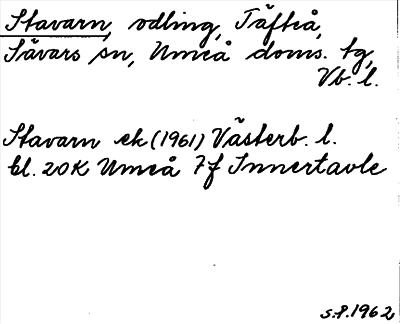 Stavarn, odling, Täfteå,
Sävars sn, Umeå doms. tg,
Vb. l.
Stavarn ek (1961) Västerb. l.
bl. 20K Umeå 7f Innertavle
S.P. 1962